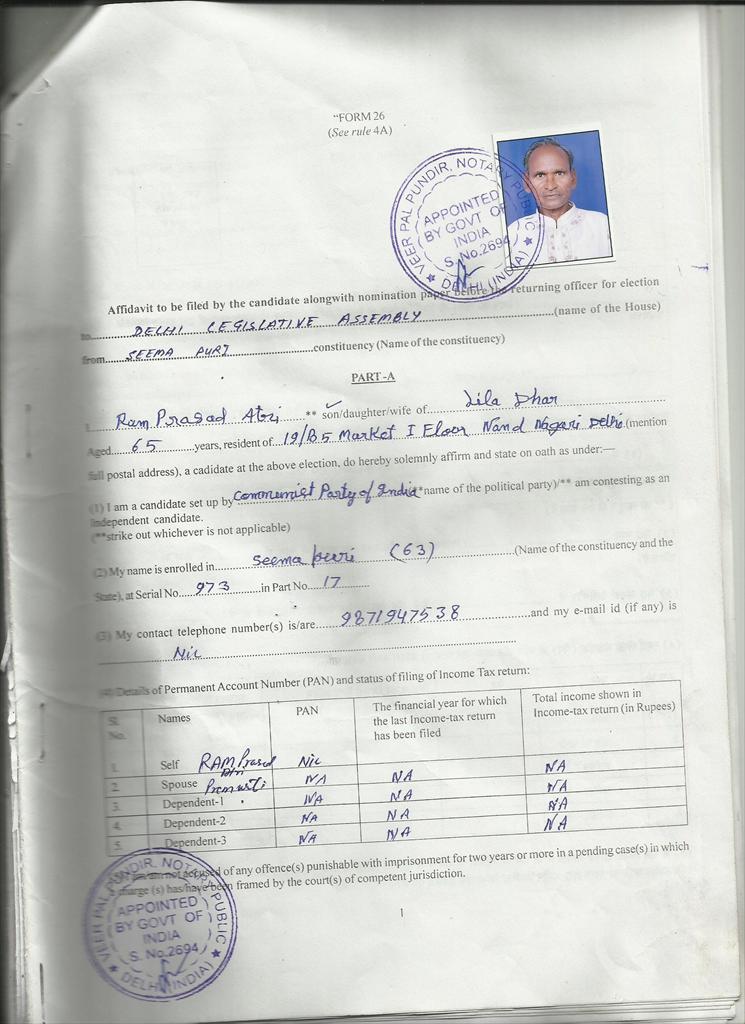 "FORM 26
(See rule 4A)
VEER PAL PUNDIR, NOTARY PUBLIC
APPOINTED
BY GOVT OF
INDIA
S. No.2694
★ DELHI (INDIA) ★
Affidavit to be filed by the candidate alongwith nomination paper before the returning officer for election
to......DELHI LEGISLATIVE ASSEMBLY......(name of the House)
from......SEEMA PURI......constituency (Name of the constituency)
PART-A
I......Ram Prasad Atri......** son/daughter/wife of......Lila Dhar......
Aged......65......years, resident of 19/B5 Market I Floor Nand Nagari Delhi.(mention
full postal address), a cadidate at the above election, do hereby solemnly affirm and state on oath as under:—
(1) I am a candidate set up by Communist Party of India(**name of the political party)/** am contesting as an
Independent candidate.
(**strike out whichever is not applicable)
(2) My name is enrolled in......Seema puri (63)......(Name of the constituency and the
State), at Serial No....973......in Part No....17......
(3) My contact telephone number(s) is/are......9871947538......and my e-mail id (if any) is
......Nil......
(4) Details of Permanent Account Number (PAN) and status of filing of Income Tax return:
Sl. No. Names PAN The financial year for which the last Income-tax return has been filed Total income shown in Income-tax return (in Rupees)
1. Self RAM Prasad Atri Nil NA
2. Spouse NA NA NA
3. Dependent-1 NA NA NA
4. Dependent-2 NA NA NA
5. Dependent-3 NA NA
am/am not accused of any offence(s) punishable with imprisonment for two years or more in a pending case(s) in which
a charge (s) has/have been framed by the court(s) of competent jurisdiction.
1
VEER PAL PUNDIR, NOTARY PUBLIC
APPOINTED
BY GOVT OF
INDIA
S. No.2694
★ DELHI (INDIA) ★